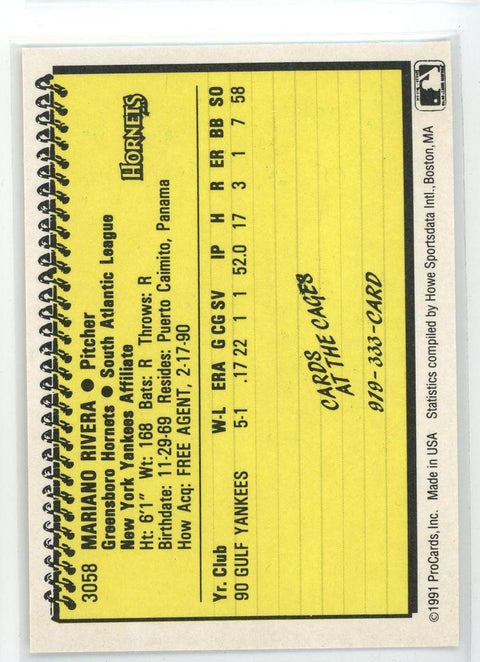 3058 MARIANO RIVERA ● Pitcher
Greensboro Hornets ● South Atlantic League
New York Yankees Affiliate
Ht: 6'1" Wt: 168 Bats: R Throws: R
Birthdate: 11-29-69 Resides: Puerto Caimito, Panama
How Acq: FREE AGENT, 2-17-90
HORNETS
Yr. Club W-L ERA G CG SV IP H R ER BB SO
90 GULF YANKEES 5-1 .17 22 1 1 52.0 17 3 1 7 58
CARDS
AT THE CAGES
919-333-CARD
©1991 ProCards, Inc. Made in USA Statistics compiled by Howe Sportsdata Intl., Boston, MA